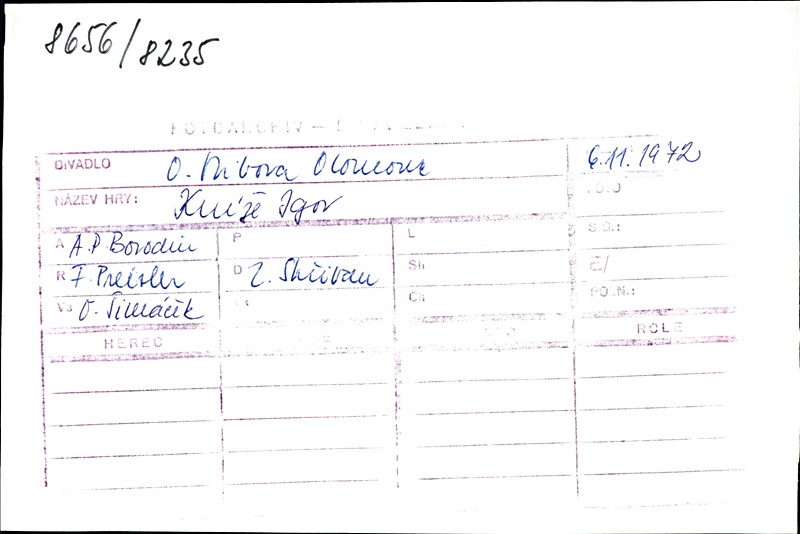 8656/8235
FOTOARCHIV –
DIVADLO O. Stibora Olomouc 6.11.1972
NÁZEV HRY: Kníže Igor
A A.P. Borodin P L S.Q.:
R F. Preisler D Z. Skřivan Sh Č/
Vs O. Šimáček Ch PO.N.:
HEREC ROLE